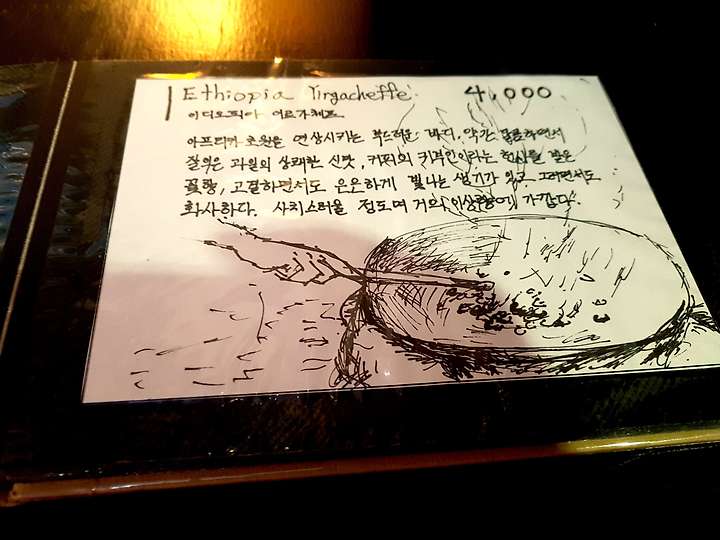 Ethiopia Yirgacheffe 4,000
이디오피아 이르가체프
아프리카 초원을 연상시키는 부드러운 바디, 약간 달콤하면서
잘익은 과일의 상쾌한 신맛, 커피의 귀부인이라는 찬사를 받은
꽃향, 고결하면서도 은은하게 빛나는 생기가 있고 그러면서도
화사하다. 사치스러울 정도며 거의 이상향에 가깝다.